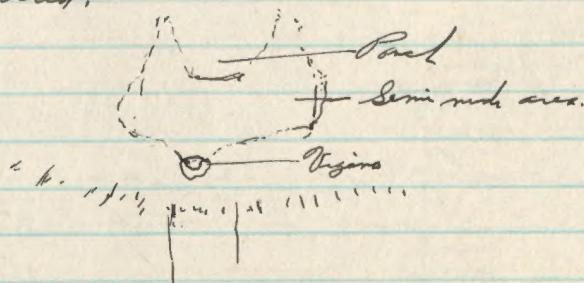 Pouch
Semi nude area.
Vagina